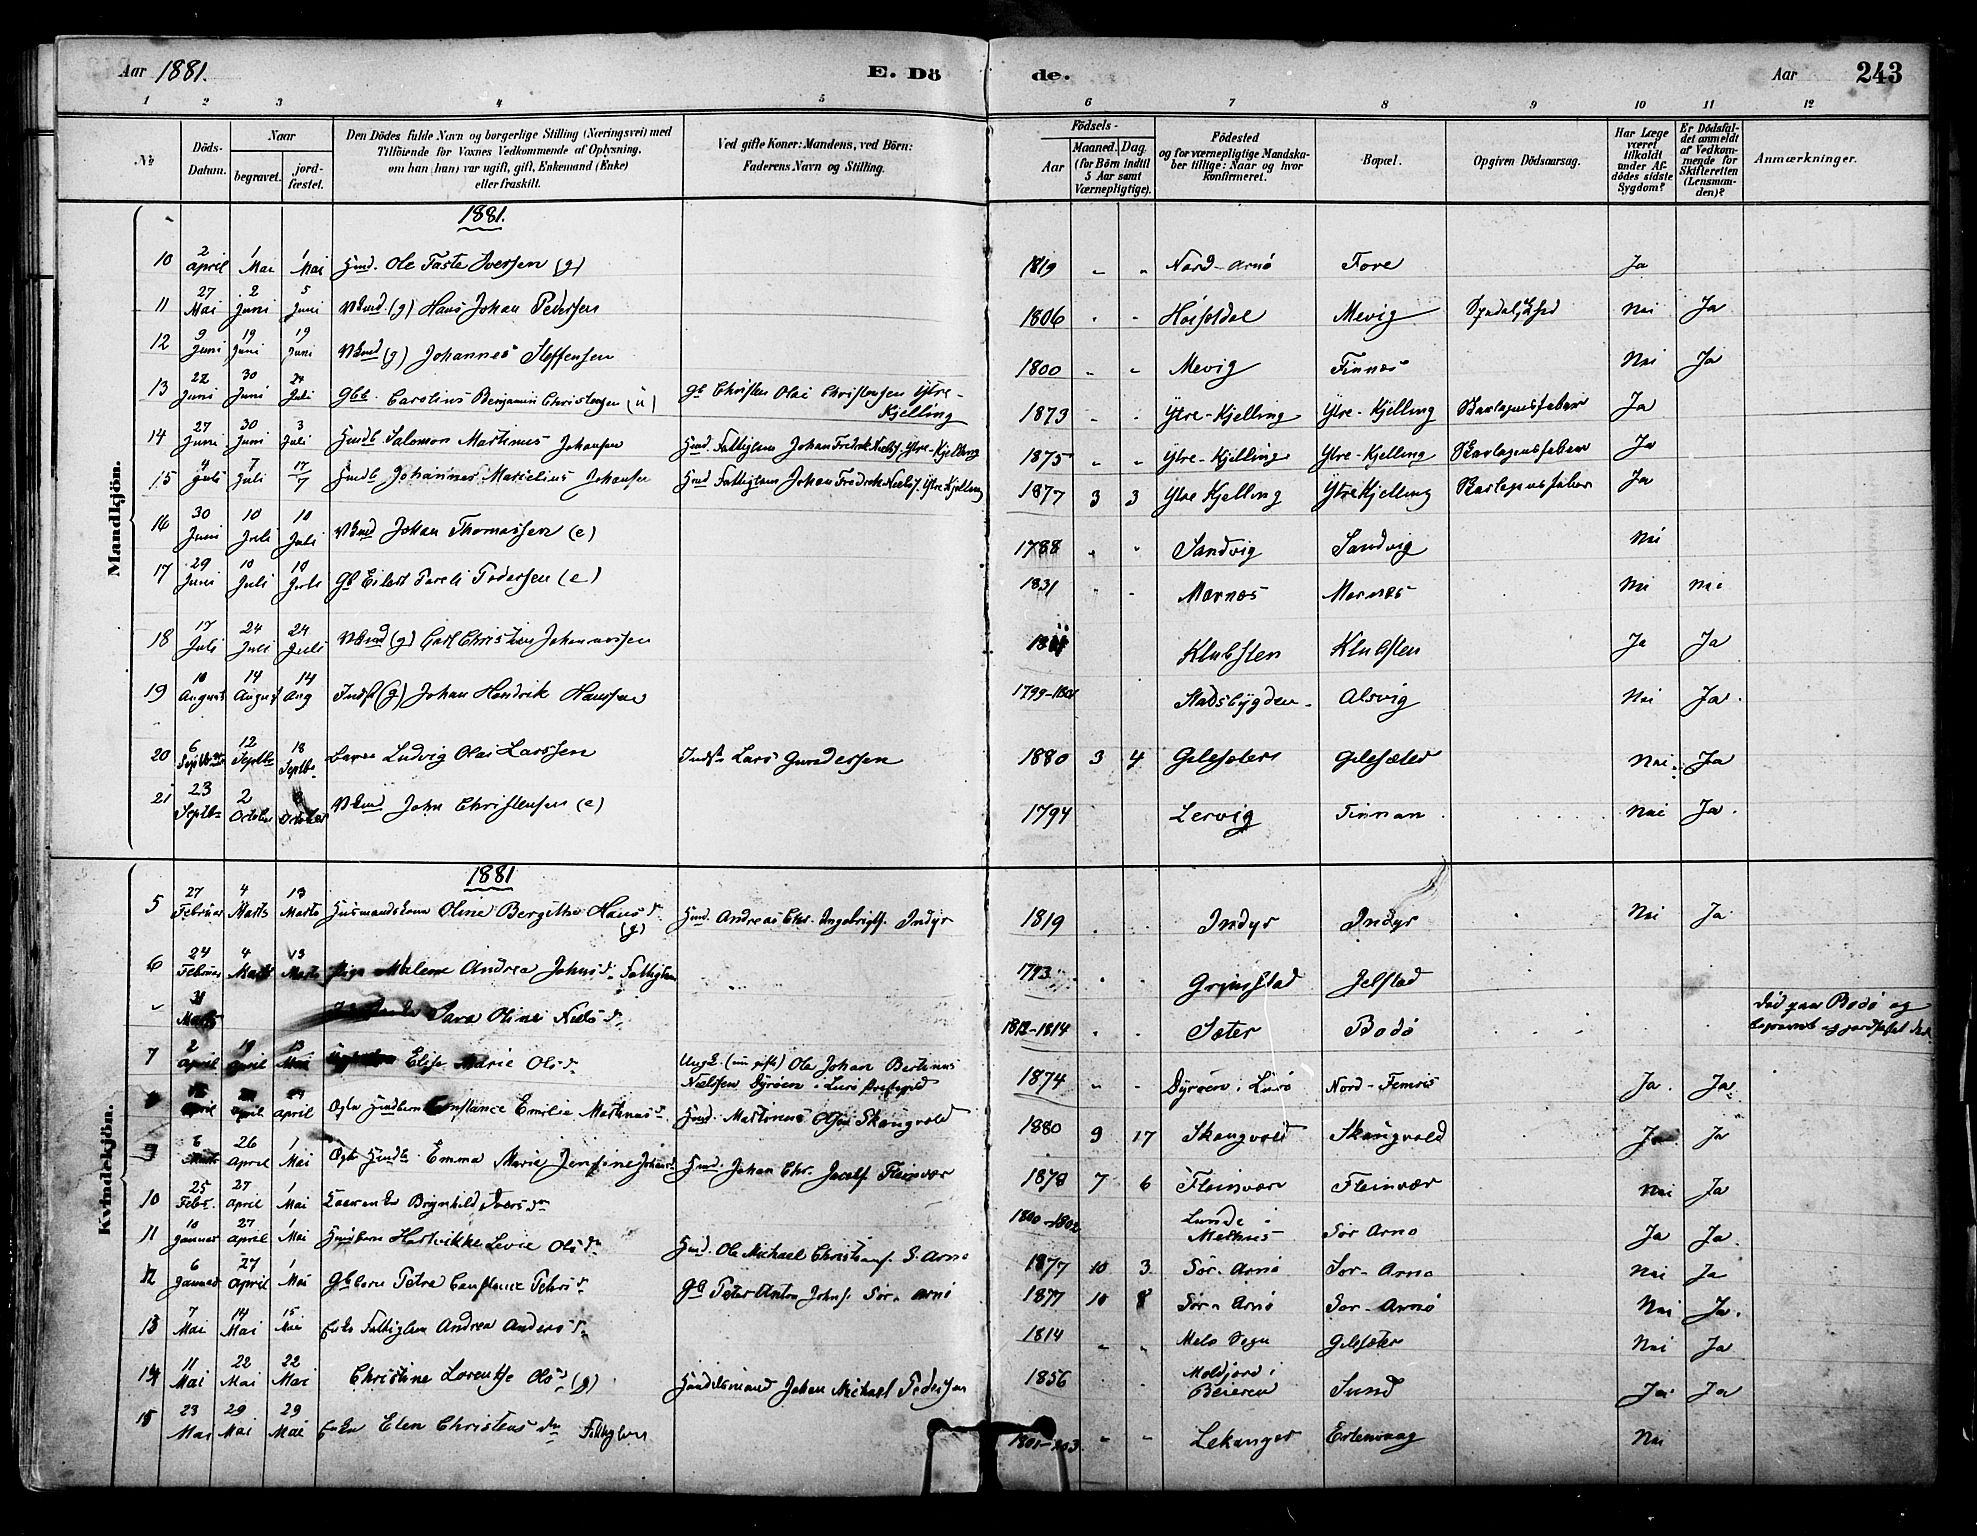 Aar 1881.
E. Dö
de.
Aar
243
1 2 3 4 5 6 7 8 9 10 11 12
No
Döds-Datum.
Naar
begravet.
jord-fæstet.
Den Dödes fulde Navn og borgerlige Stilling (Næringsvei) med
Tilföiende for Voxnes Vedkommende af Oplysning,
om han (hun) var ugift, gift, Enkemand (Enke)
eller fraskilt.
Ved gifte Koner: Mandens, ved Börn:
Faderens Navn og Stilling.
Födsels-
Aar
Maaned. Dag.
(for Börn indtil
5 Aar samt
Værnepligtige).
Födested
og for værnepligtige Mandska-
ber tillige: Naar og hvor
konfirmeret.
Bopæl.
Opgiven Dödsaarsag.
Har Læge
været
tilkaldt
under Af-
dödes sidste
Sygdom?
Er Dödsfal-
det anmeldt
af Vedkom-
mende for
Skifteretten
(Lensman-
den)?
Anmærkninger.
Mandkjön.
1881.
10 2 April 1 Mai 1 Mai Hmd. Ole Taste Iversen (g) 1819 " " Nord-Arnö Fore Ja
11 27 Mai 2 Juni 5 Juni (g) Hans Johan Pedersen 1806 " " Mevig Nei Ja
12 9 Juni 19 Juni 19 Juni (g) Johannes Steffensen 1800 " " Mevig Finnes Nei Ja
13 22 Juni 30 Juni 24 Juli Gbb. Carolius Benjamin Christensen (u) Gb Christen Olai Christensen Ytre-Kjelling 1873 " " Ytre-Kjelling Ytre-Kjelling Skarlagensfeber Ja
14 27 Juni 30 Juni 3 Juli Hmdb. Salomon Martinus Johansen Hmd. Fattiglem Johan Fredrik Nielss. Ytre-Kjelling 1875 " " Ytre-Kjelling Ytre-Kjelling Skarlagensfeber Ja
15 4 Juli 7 Juli 17/7 Hmdb Johannes Marselius Johansen Hmd Fattiglem Johan Fredrik Nielss. Ytre Kjelling 1877 3 3 Ytre Kjelling Ytre Kjelling Skarlagensfeber Ja
16 30 Juni 10 Juli 10 Juli Johan Thomassen (e) 1788 " " Sandvig Sandvig Nei
17 29 Juni 10 Juli 10 Juli Gb Eilert Pareli Pedersen (e) 1831 " " Mærnes Mærnes Nei nei
18 17 Juli 24 Juli 24 Juli (g) Carl Christian Johannessen Klubsten Klubsten Ja Ja
19 10 August 14 August 14 Aug Inds (g) Johan Hendrik Hanssen 1799-1801 Stadsbygden Alsvig Nei Ja.
20 6 Septbr 12 Septbr 18 Septbr Ludvig Olai Larssen Inds Lars Gundersen 1880 3 4 Gilesæter Gilesæter Nei. Ja
21 23 Septbr 2 October October John Christensen (e) 1794 Lervig Finnan Nei Ja.
Kvindekjön.
1881
5 27 Februar 4 Marts 13 Marts Husmandskone Oline Bergitte Hansd. (g) Hmd. Andreas Chr. Ingebrigts. Indyr 1819 " " Indyr Indyr Nei Ja
6 24 Februar 4 Marts 13 Marts Pige Malene Andrea Johnsd. Fattiglem 1793 " " Grimstad Jelstad
" 31 Marts Sara Oline Nielsd. 1812-1814 " " Sæter Bodö död paa Bodö og
begravet og jordfæstet der
7 2 April 19 April 13 Mai Elise Marie Olsd. Ungk. (nu gift) Ole Johan Bertinus
Nielssen Dyröen i Lurö Prstgjld 1874 " " Dyröen i Lurö Nord-Femris Ja. Ja
April April April Ogte Hmdbarn Constance Emilie Martinusd. Hmd. Martinus Olsen Skaugvold 1880 9 17 Skaugvold Skaugvold Ja Ja
6 Marts 26 April 1 Mai Ogte Hmdb. Emma Marie Jensine Johansd Hmd. Johan Chr. Jacobs. Fleinvær 1878 7 6 Fleinvær Fleinvær Nei Ja
10 25 Febr. 27 April 1 Mai Brynhild Iversd. 1800-1802 Lunde i
Melhus Sör Arnö Ja Ja.
11 10 Januar 27 April 1 Mai Hmdbarn Hartvikke Levie Olsd. Hmd. Ole Michael Christians. S. Arnö 1877 10 3 Sör-Arnö Sör-Arnö Nei Ja
12 6 Januar 27 April 1 Mai Gbbarn Petra Constance Petersd. Gb Peter Anton Johns. Sör-Arnö 1877 10 8 Sör-Arnö Sör-Arnö Nei Ja.
13 7 Mai 14 Mai 15 Mai Enke Fattiglem Andrea Andersd. 1814 " " Melö Sogn Gilesæter Nei Ja
14 11 Mai 22 Mai 22 Mai Christine Lorentse Olsd (g) Handelsmand Johan Michael Pedersen 1856 Moldjord i
Beieren Sund Ja Ja
15 23 Mai 29 Mai 29 Mai Enke Elen Christensd. Fattiglem 1801-1803 " " Lekanger Nei